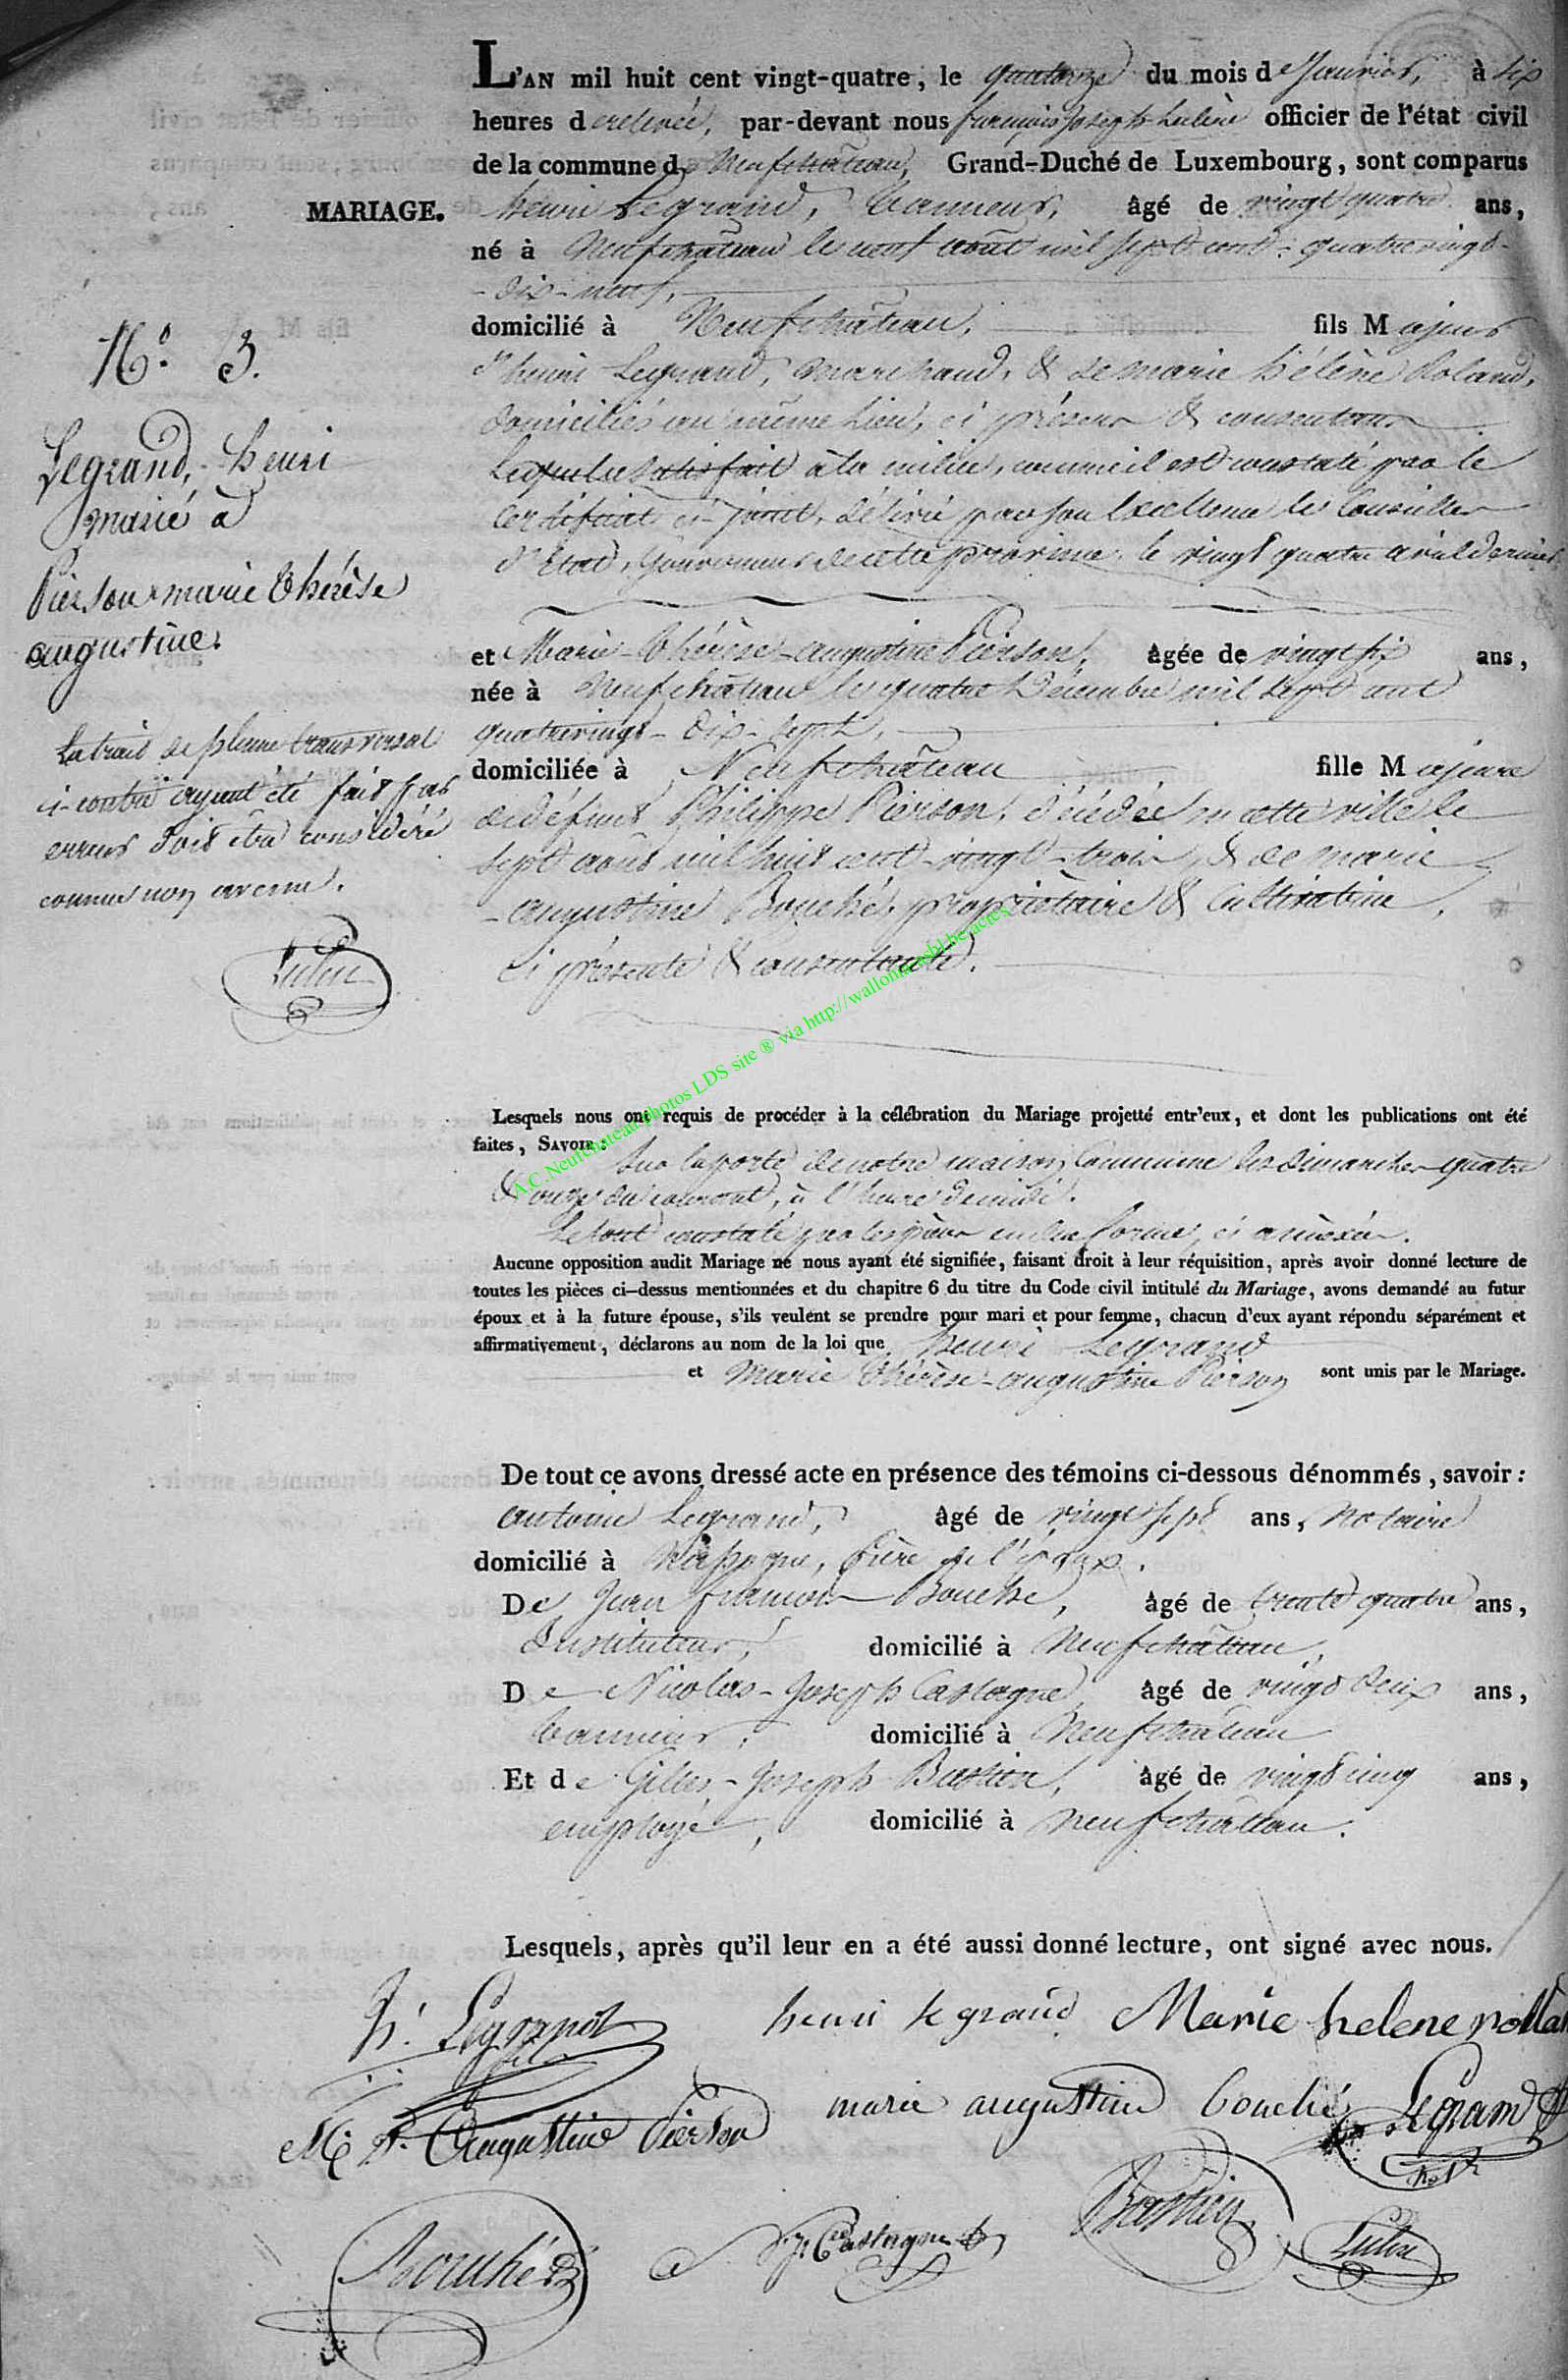 L'AN mil huit cent vingt-quatre, le quatorze du mois de Janvier, à six
heures de relevée, par-devant nous françois Joseph officier de l'état civil
de la commune de Neufchâteau, Grand-Duché de Luxembourg, sont comparus
MARIAGE.
henri Legrand, tanneur, âgé de vingt quatre ans,
né à Neufchâteau le neuf août mil sept cent quatre vingt-
-dix-neuf,
domicilié à Neufchâteau, fils Majeur
d'henri Legrand, marchand, & de marie hélène Roland,
domiciliés au même lieu, ci présens & consentans
Lequel a satisfait à la milice, comme il est constaté par le
certificat ci-joint, délivré par son Excellence le Conseiller
d'Etat, Gouverneur de cette province le vingt quatre avril dernier
N.º 3.
Legrand, henri
marié à
Pierson marie thérèse
augustine.
et Marie-thérèse-augustine Pierson, âgée de vingt six ans,
née à Neufchâteau le quatre Décembre mil sept cent
quatrevingt-dix-sept,
domiciliée à Neufchâteau fille Majeure
de défunt Philippe Pierson, décédé en cette ville le
sept août mil huit cent-vingt-trois, & de marie
-augustine Bouché, propriétaire & Cultivatrice,
ci présente & consentante.
Le trait de plume transversal
ci-contre ayant été fait par
erreur doit être considéré
comme non avenu.
A.C.Neufchateau photos LDS site ® via http://wallonia
Lesquels nous ont requis de procéder à la célébration du Mariage projetté entr'eux, et dont les publications ont été
faites, SAVOIR :
Sur la porte de notre maison Commune les dimanches quatre
& onze du courant, à l'heure de midi.
Le tout constaté par les pièces en due forme, ci annexées.
Aucune opposition audit Mariage ne nous ayant été signifiée, faisant droit à leur réquisition, après avoir donné lecture de
toutes les pièces ci-dessus mentionnées et du chapitre 6 du titre du Code civil intitulé du Mariage, avons demandé au futur
époux et à la future épouse, s'ils veulent se prendre pour mari et pour femme, chacun d'eux ayant répondu séparément et
affirmativement, déclarons au nom de la loi que henri Legrand
et Marie thérèse-augustine Pierson sont unis par le Mariage.
De tout ce avons dressé acte en présence des témoins ci-dessous dénommés, savoir :
antoine Legrand, âgé de vingt sept ans, Notaire
domicilié à frère de l'époux.
De Jean françois Bouché, âgé de trente quatre ans,
Instituteur, domicilié à Neufchâteau,
De Nicolas-Joseph Castagne, âgé de vingt deux ans,
tanneur, domicilié à Neufchâteau
Et de Gilles-Joseph Bastien, âgé de vingt cinq ans,
employé, domicilié à Neufchâteau.
Lesquels, après qu'il leur en a été aussi donné lecture, ont signé avec nous.
h. Legrand henri le grand Marie helene
fils
M. t. Augustine Pierson marie augustine bouché Legrand
Not
Bouché N.J. Castagne Bastien